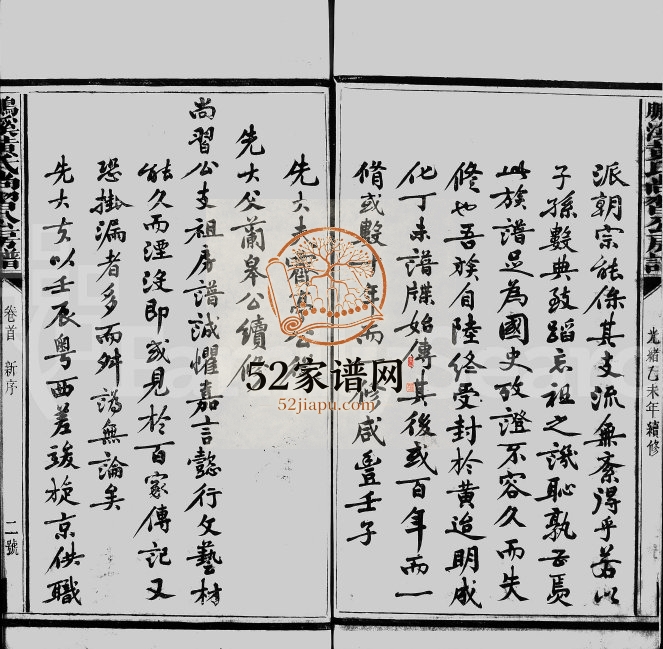 派朝宗能保其支流無紊得乎若以
子孫數典致蹈忘祖之譏恥孰甚焉
此族譜足為國史攷證不容久而失
修也吾族自陸終受封於黃迨明成
化丁未譜牒始傳其後或百年而一
脩或數十年而一修咸豐壬子
先大夫
先大父蘭皋公續修
尚習公支祖房譜誠懼嘉言懿行文藝材
能久而湮沒即或見於百家傳記又
恐掛漏者多而舛譌無論矣
先大夫以壬辰粵西差竣旋京供職
光緒乙未年續修
鵬溪黃氏尚習公房譜
卷首 新序
二號
52家谱网
52jiapu.com